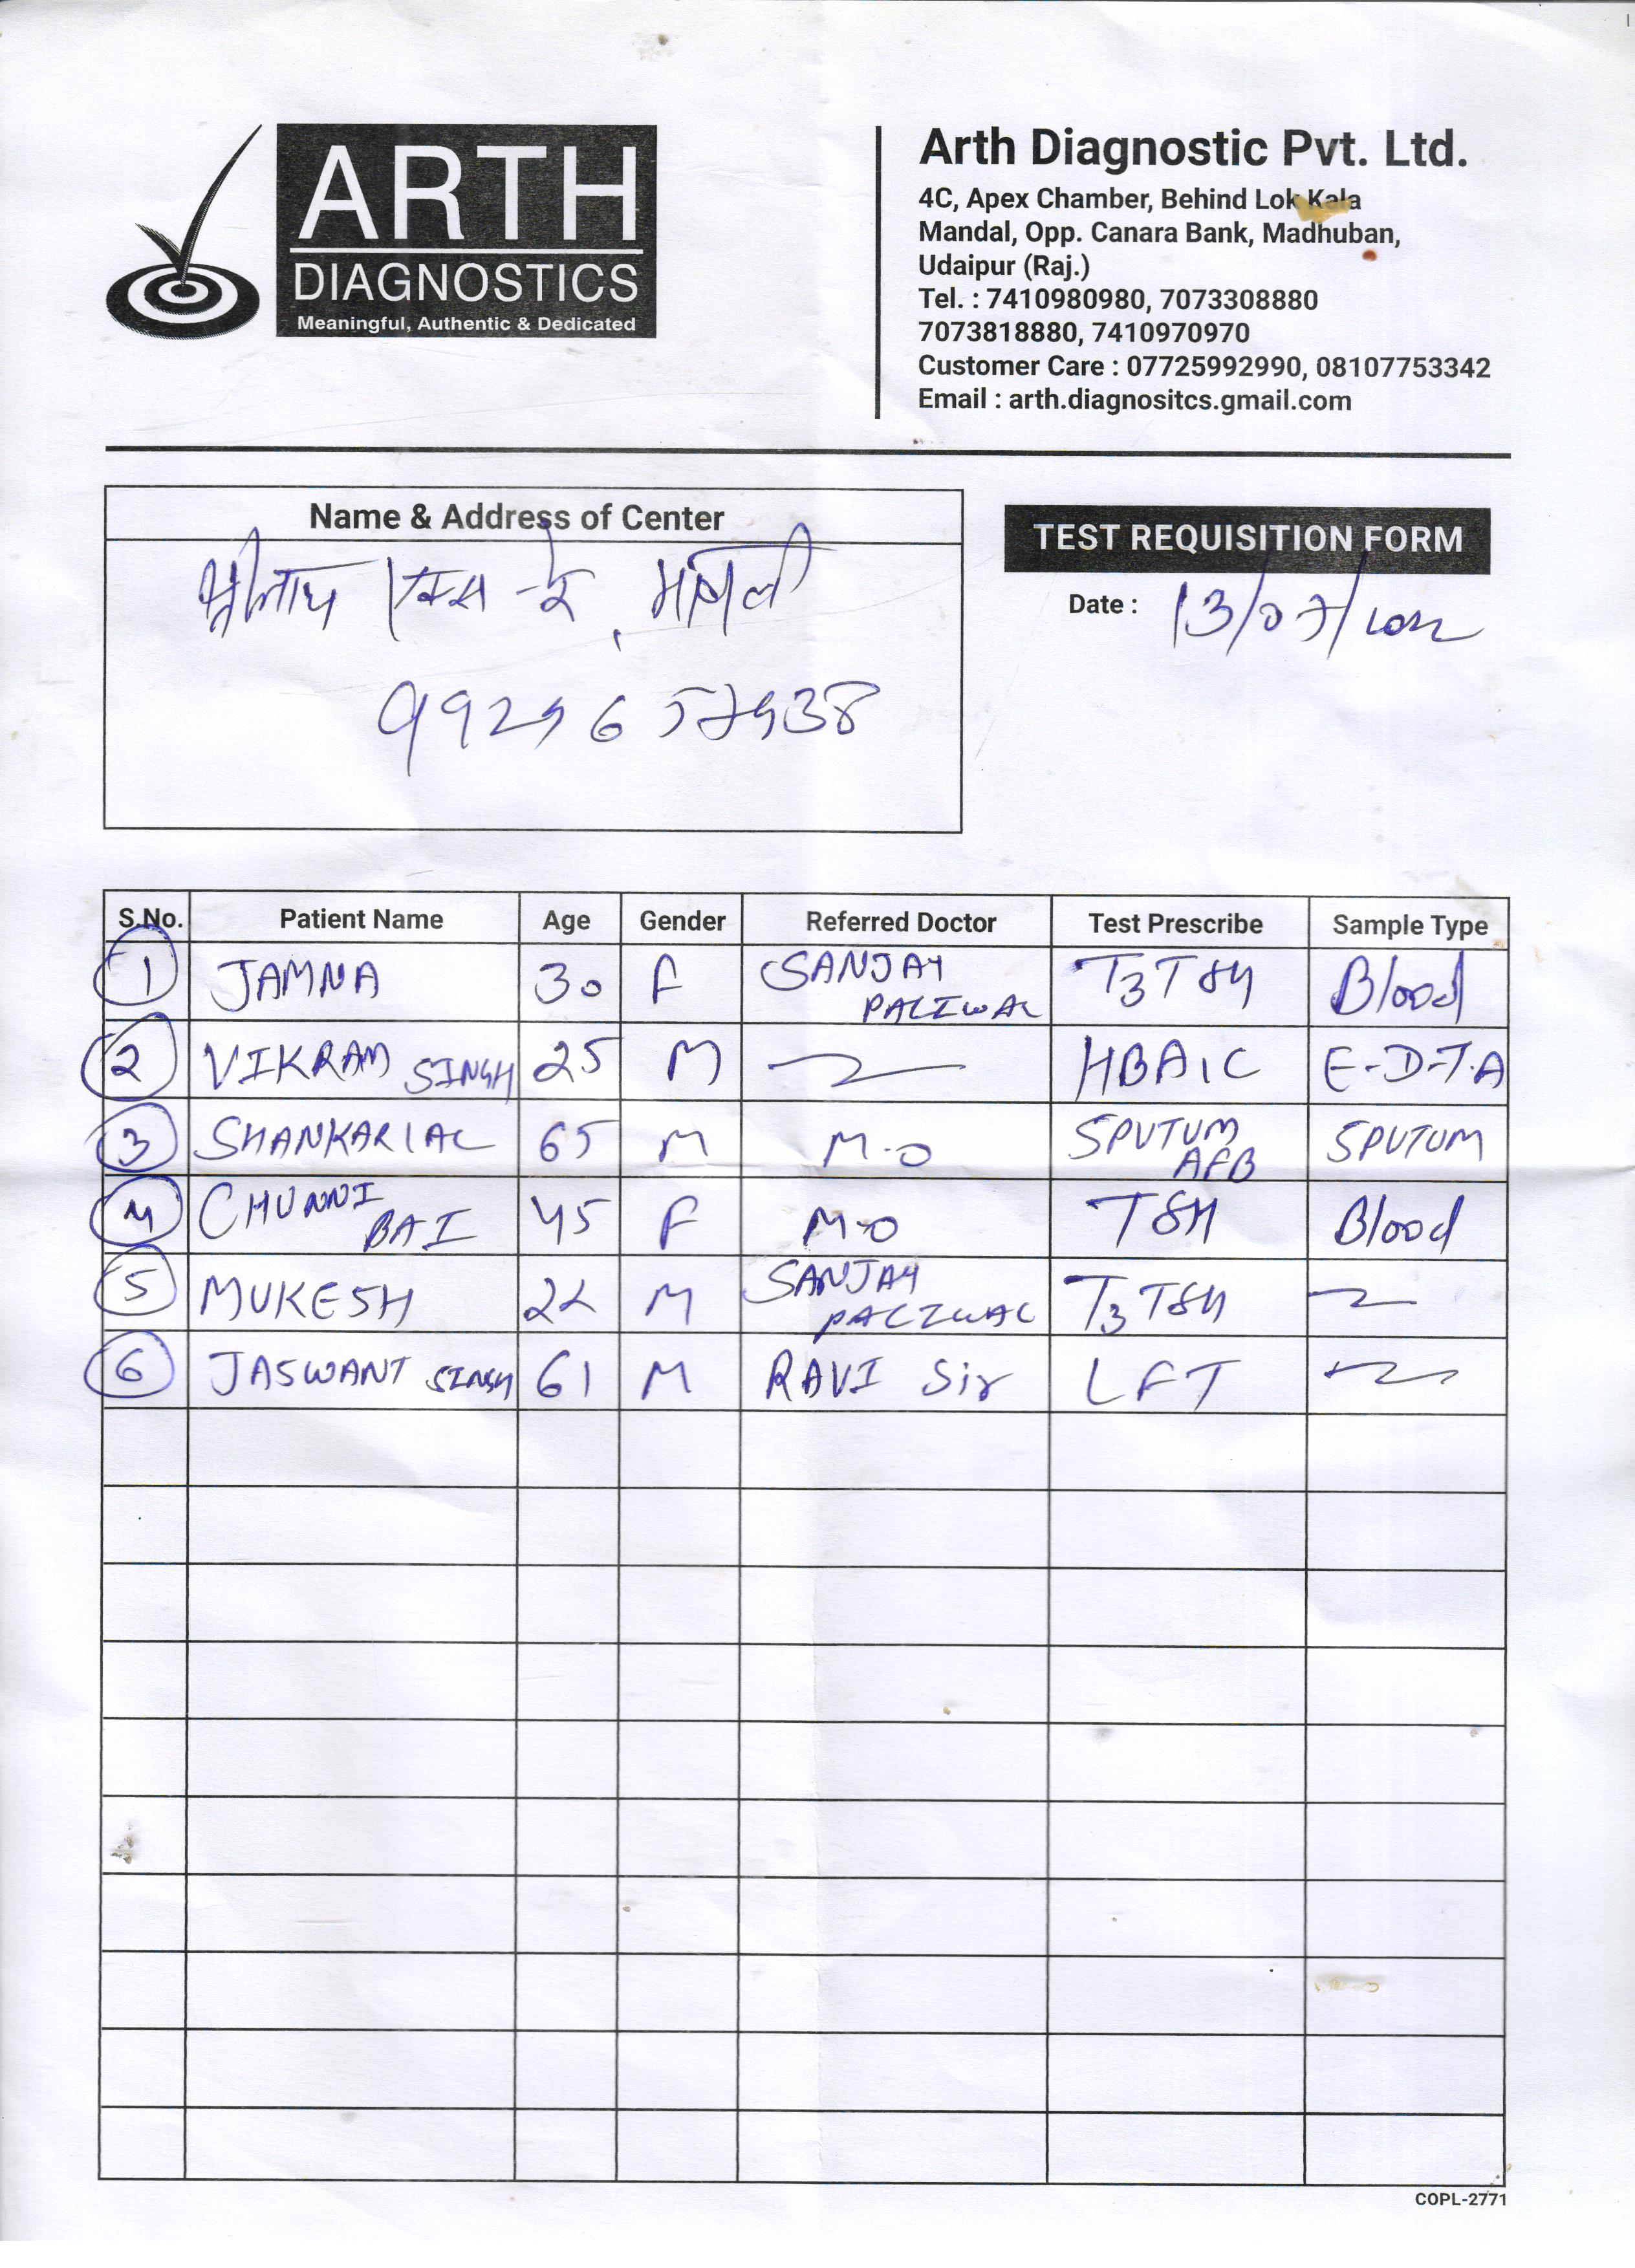 ARTH
DIAGNOSTICS
Meaningful, Authentic & Dedicated
Arth Diagnostic Pvt. Ltd.
4C, Apex Chamber, Behind Lok Kala
Mandal, Opp. Canara Bank, Madhuban,
Udaipur (Raj.)
Tel. : 7410980980, 7073308880
7073818880, 7410970970
Customer Care : 07725992990, 08107753342
Email : arth.diagnositcs.gmail.com
Name & Address of Center
श्रीनाथ एक्स-रे,
TEST REQUISITION FORM
Date : 13/07/2022
S.No. Patient Name Age Gender Referred Doctor Test Prescribe Sample Type
1 JAMNA 30 F SANJAY PALIWAL T3 TSH Blood
2 VIKRAM SINGH 25 M HBA1C E-D-T.A
3 SHANKARLAL 65 M M-O SPUTUM AFB SPUTUM
4 CHUNNI BAI 45 F M-O TSH Blood
5 MUKESH 22 M SANJAY PALIWAL T3 TSH
6 JASWANT SINGH 61 M RAVI Sir LFT
COPL-2771